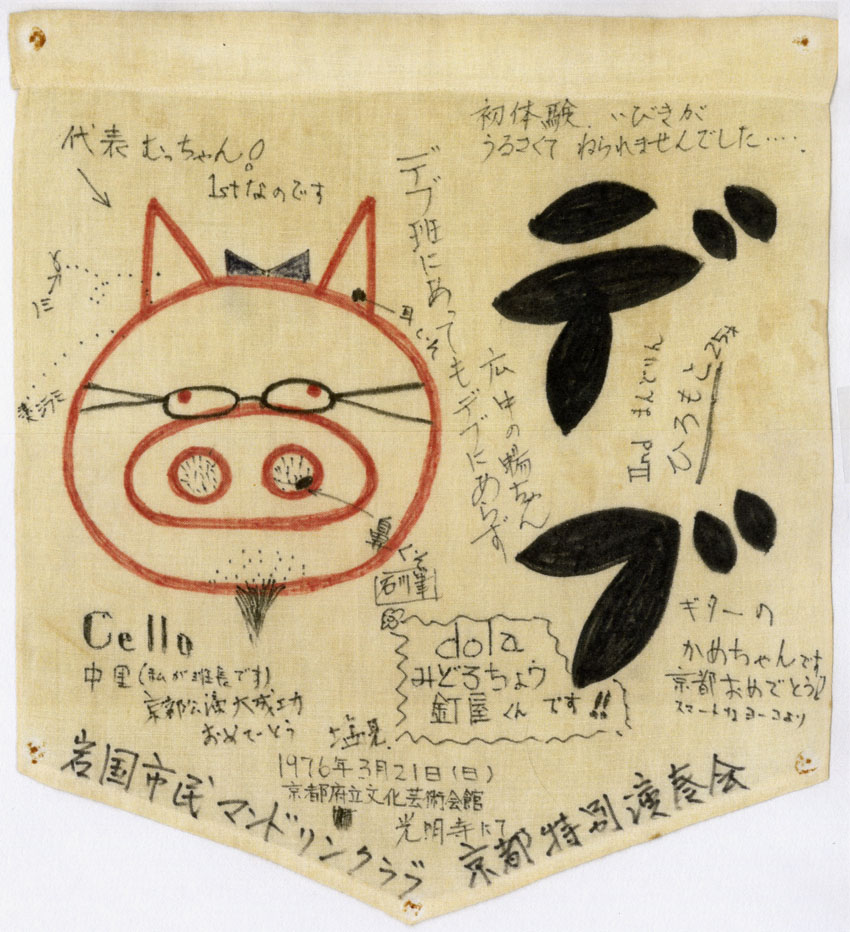 初体験、いびきが
うるさくて ねられませんでした‥‥.
代表 むっちゃん!
1stなのです
デブ班にあってもデブにあらず
広中の
ちゃん
デブ
ひろもと
IInd
耳くそ
鼻くそ
石川筆
Cello
中里(私が班長です)
京都公演大成功
おめでーとう
塩見
dola
みどろちょう
釘屋くん です!!
ギターの
かめちゃんです
京都おめでとう!
スマートなヨーコより
1976年3月21日(日)
京都府立文化芸術会館
光明寺にて
岩国市民マンドリンクラブ 京都特別演奏会